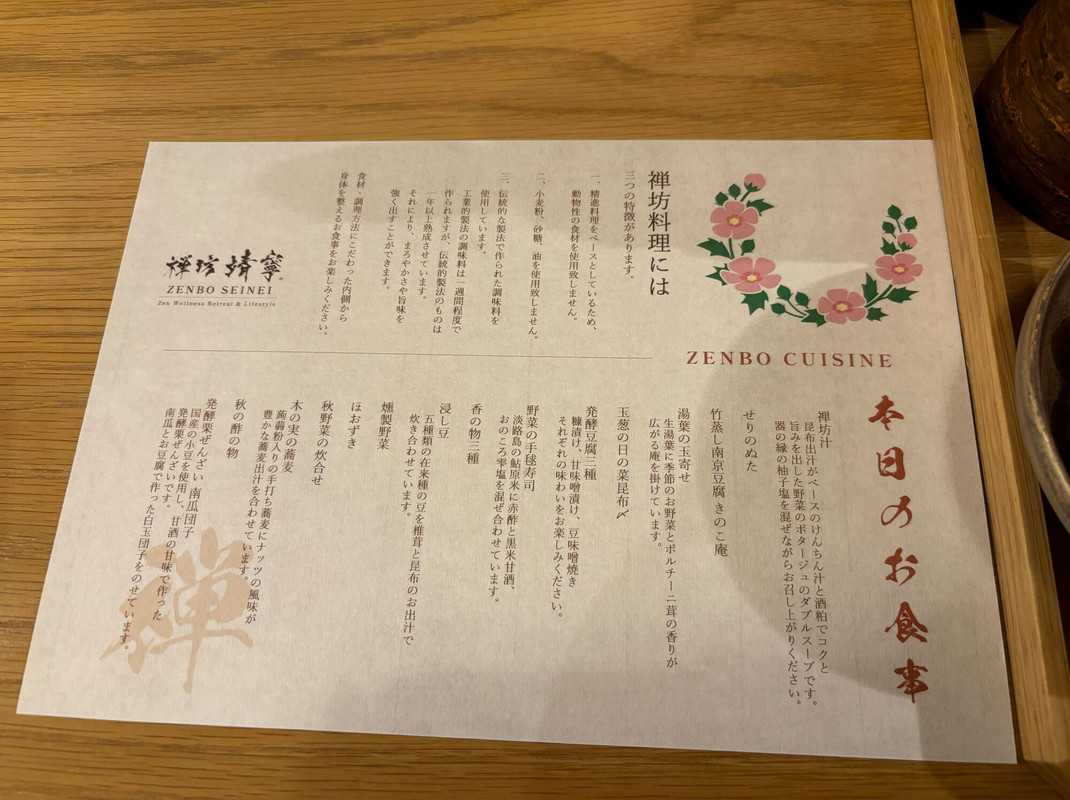 ZENBO CUISINE
本日のお食事
禅坊汁
昆布出汁がベースのけんちん汁と酒粕でコクと
旨みを出した野菜のポタージュのダブルスープです。
器の縁の柚子塩を混ぜながらお召し上がりください。
せりのぬた
竹蒸し南京豆腐 きのこ庵
湯葉の玉寄せ
生湯葉に季節のお野菜とポルチーニ茸の香りが
広がる庵を掛けています。
玉葱の日の菜昆布〆
発酵豆腐三種
糠漬け、甘味噌漬け、豆味噌焼き
それぞれの味わいをお楽しみください。
野菜の手毬寿司
淡路島の鮎原米に赤酢と黒米甘酒、
おのころ雫塩を混ぜ合わせています。
香の物三種
浸し豆
五種類の在来種の豆を椎茸と昆布のお出汁で
炊き合わせています。
燻製野菜
ほおずき
秋野菜の炊合せ
木の実の蕎麦
蒟蒻粉入りの手打ち蕎麦にナッツの風味が
豊かな蕎麦出汁を合わせています。
秋の酢の物
発酵栗ぜんざい 南瓜団子
国産の小豆を使用し、甘酒の甘味で作った
発酵栗ぜんざいです。
南瓜とお豆腐で作った白玉団子をのせています。
禅坊料理には
三つの特徴があります。
一、精進料理をベースとしているため、
動物性の食材を使用致しません。
二、小麦粉、砂糖、油を使用致しません。
三、伝統的な製法で作られた調味料を
使用しています。
工業的製法の調味料は一週間程度で
作られますが、伝統的製法のものは
一年以上熟成させています。
それにより、まろやかさや旨味を
強く出すことができます。
食材・調理方法にこだわった内側から
身体を整えるお食事をお楽しみください。
禅坊 靖寧
ZENBO SEINEI
Zen Wellness Retreat & Lifestyle
禅